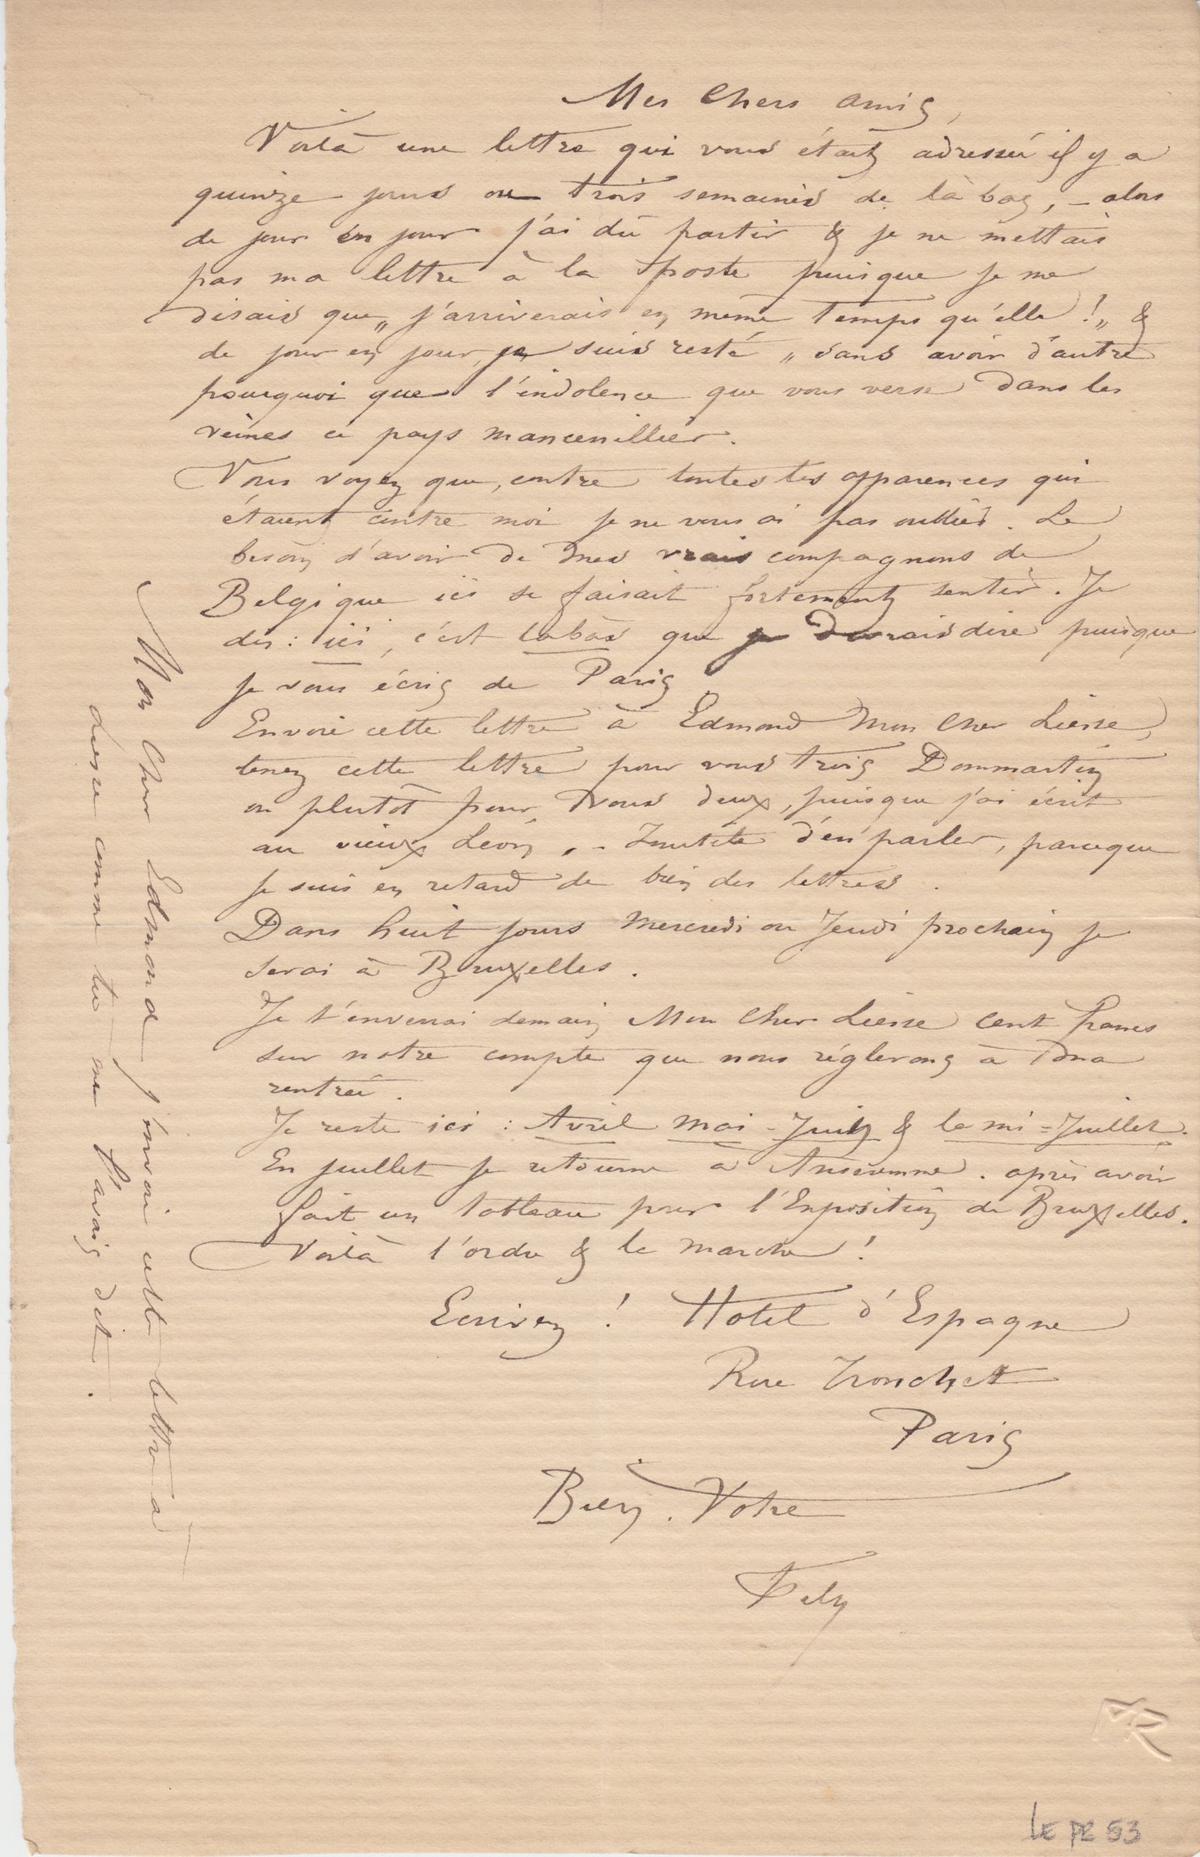 Mes Chers amis,
Voilà une lettre qui vous était adressée il y a
quinze jours ou trois semaines de là bas, – alors
de jour en jour j'ai dû partir & je ne mettais
pas ma lettre à la poste puisque je me
disais que „ j'arriverais en même temps qu'elle ! „ &
de jour en jour, je suis resté „ sans avoir d'autre
pourquoi que l'indolence que vous verse dans les
veines ce pays mancenillier.
Vous voyez que, contre toutes les apparences qui
étaient contre moi je ne vous ai pas oubliés. Le
besoin d'avoir de mes vrais compagnons de
Belgique ici se faisait fortement sentir. Je
dis : ici, c'est labàs que je devrais dire puisque
je vous écris de Paris
Envoie cette lettre à Edmond Mon Cher Liesse,
tenez cette lettre pour vous trois Dommartin
ou plutôt pour vous deux, puisque j'ai écrit
au vieux Léon, - Inutile d'en parler, parceque
je suis en retard de bien des lettres.
Dans huit jours Mercredi ou Jeudi prochain je
serai à Bruxelles.
Je t'enverrai demain Mon Cher Liesse cent francs
sur notre compte que nous réglerons à ma
rentrée.
Je reste ici : Avril Mai - Juin & la mi = Juillet.
En juillet je retourne à Anseremme. après avoir
fait un tableau pour l'Exposition de Bruxelles.
Voilà l'ordre & la marche !
Ecrivez ! Hotel d'Espagne
Rue Tronchet
Paris
Bien Votre
Fely
Mon Cher Edmond j'envoie cette lettre à
Liesse comme tu me l'avais dit.
LE PR 53